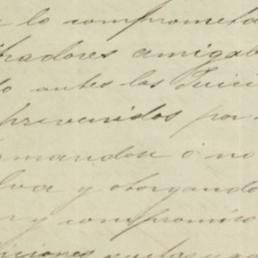 lo comprometa
radores amigab
antes los Juici
prevenidos por
rmandose ó no
lva y otorgando
r y compromiso
iciones